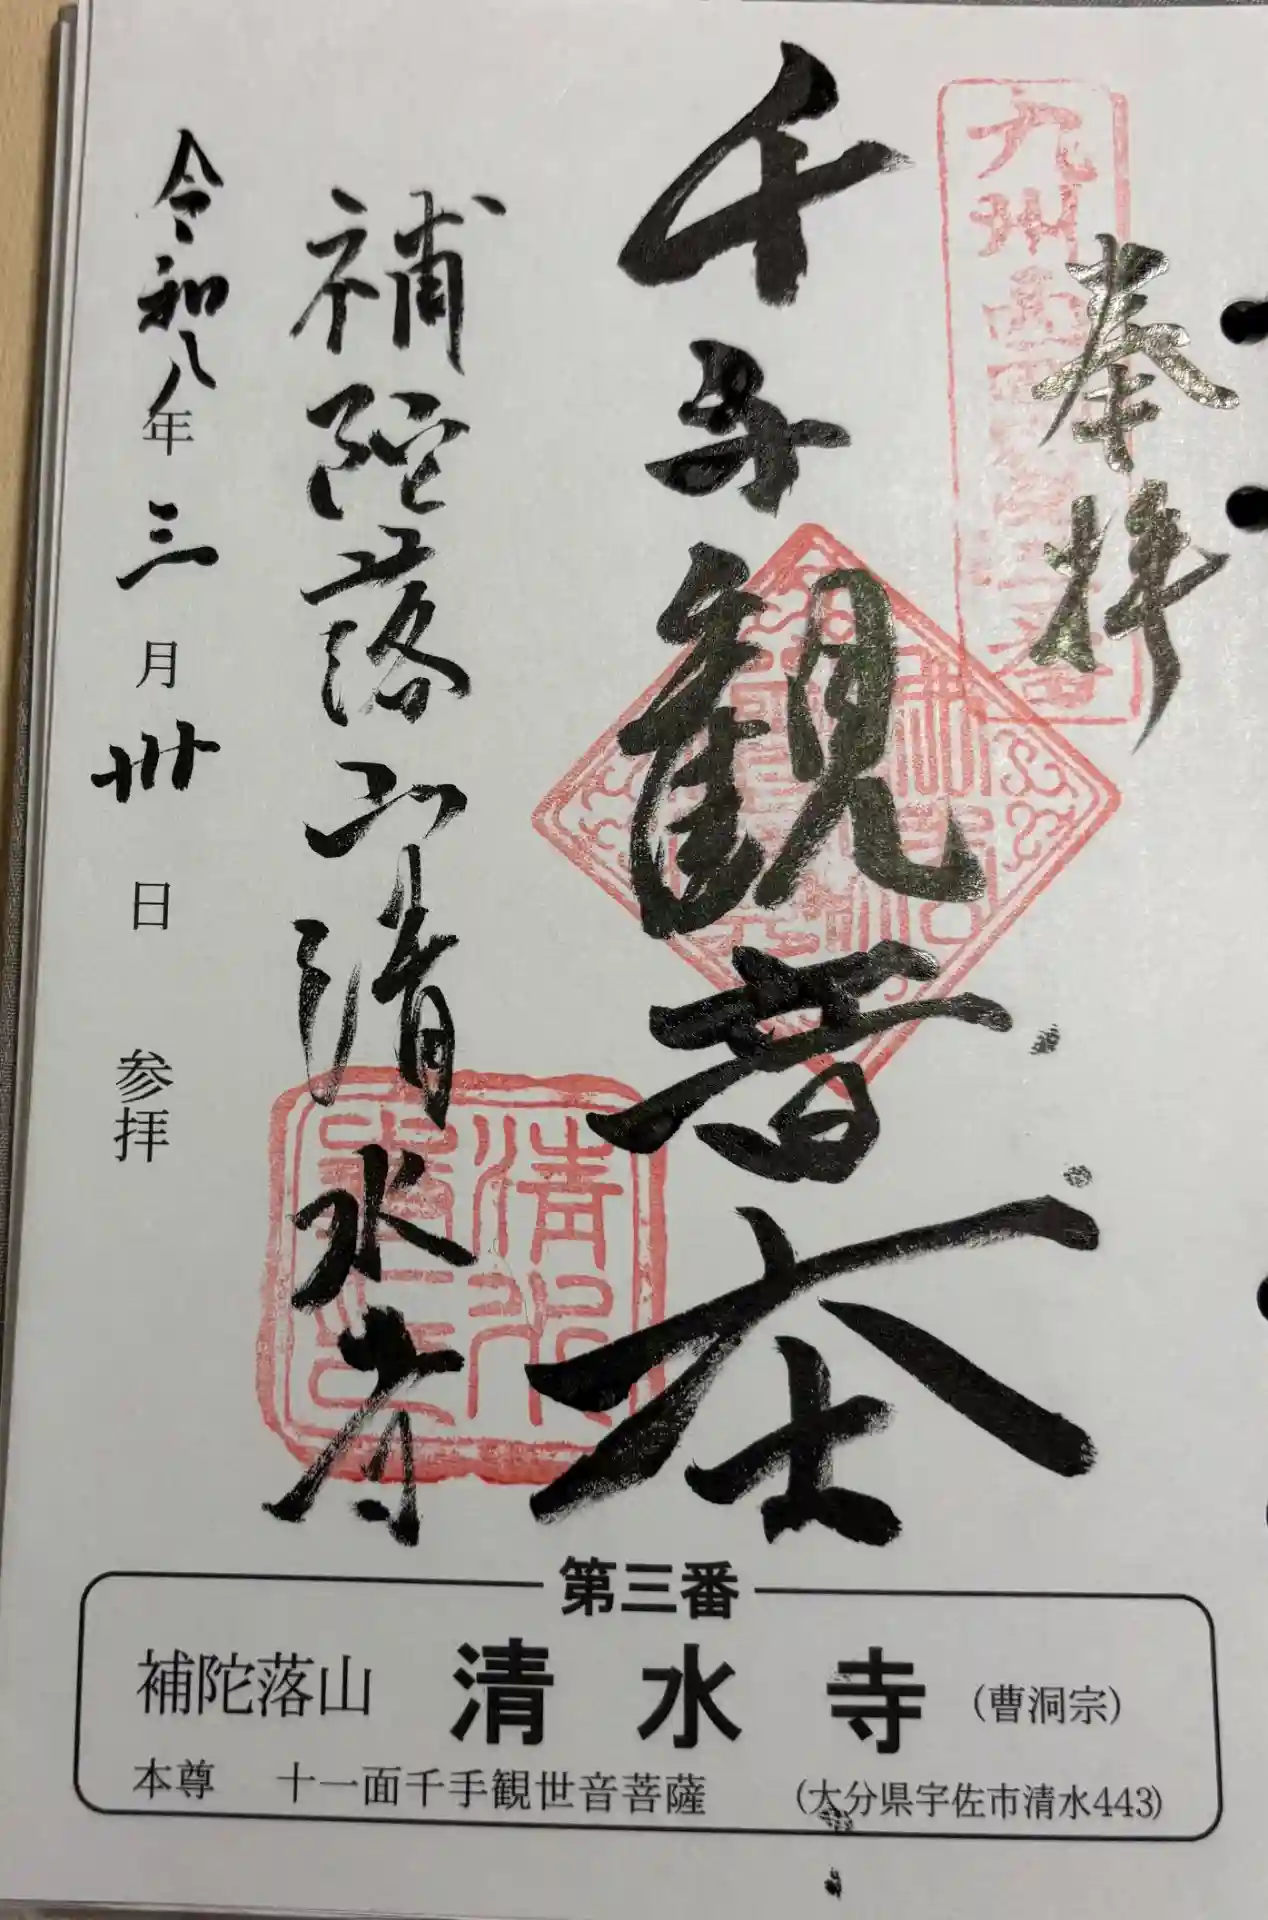 奉拝
九州西国第三番
千手観音大士
補陀落山清水寺
清水
令和八年三月卅日 参拝
第三番
補陀落山 清水寺 (曹洞宗)
本尊 十一面千手観世音菩薩 (大分県宇佐市清水443)